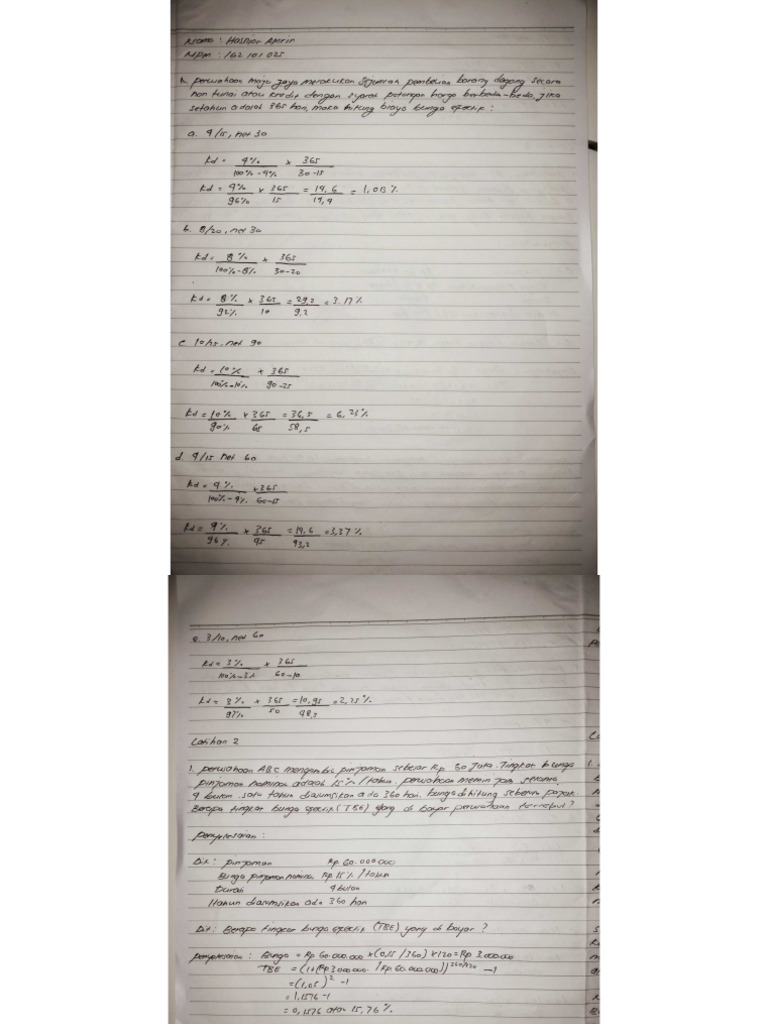 Nama : Hasnior Aprin
NPM : 162101025
1. perusahaan maju jaya merakukan sejumlah pembelian barang dagang secara
non tunai atau kredit dengan syarat potongan harga berbeda-beda, jika
setahun adalah 365 hari, maka hitung biaya bunga efektif :
a. 4/15, net 30
kd = 4% / 100% - 4% x 365 / 30-15
kd = 4% / 96% x 365 / 15 = 14,6 / 14,4 = 1,013%
b. 8/20, net 30
kd = 8% / 100% - 8% x 365 / 30-20
kd = 8% / 92% x 365 / 10 = 29,2 / 9,2 = 3.17%
c. 10/25, net 90
kd = 10% / 100% - 10% x 365 / 90-25
kd = 10% / 90% x 365 / 65 = 36,5 / 58,5 = 6,25%
d. 4/15 net 60
kd = 4% / 100% - 4% x 365 / 60-15
kd = 4% / 96% x 365 / 45 = 14,6 / 43,2 = 3,37%
e. 3/10, net 60
kd = 3% / 100% - 3% x 365 / 60-10
kd = 3% / 97% x 365 / 50 = 10,95 / 48,5 = 2,25%
Latihan 2
1. perusahaan ABC mengambil pinjaman sebesar Rp 60 Juta. Tingkat bunga
pinjaman nominal adalah 15% /tahun. perusahaan meminjam selama
4 bulan. satu tahun diasumsikan ada 360 hari. bunga dihitung sebelum pajak.
Berapa tingkat bunga efektif (TBE) yang di bayar perusahaan tersebut?
penyelesaian :
Dik : pinjaman Rp. 60.000.000
Bunga pinjaman nominal Rp. 15% /tahun
Durasi 4 bulan
1 tahun diasumsikan ada 360 hari
Dit : Berapa tingkat bunga efektif (TBE) yang di bayar ?
penyelesaian : Bunga = Rp 60.000.000 x (0,15 /360) x 120 = Rp 3.000.000
TBE = (1+(Rp 3.000.000 / Rp 60.000.000))^360/120 - 1
= (1,05)^2 - 1
= 1,1576 - 1
= 0,1576 atau 15,76 %.